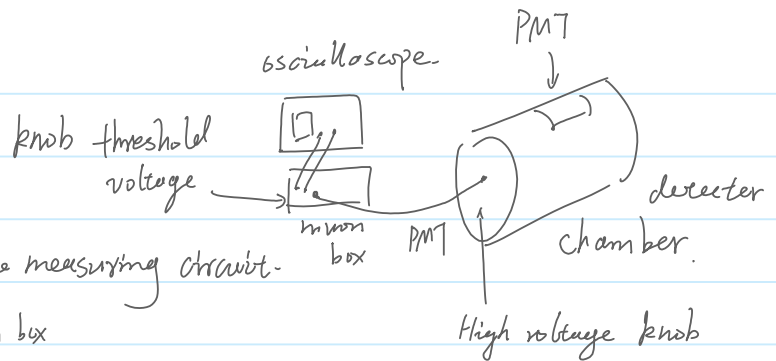 PMT
oscilloscope.
knob threshold
voltage
muon
box
PMT
detecter
chamber.
measuring circuit.
box
High voltage knob